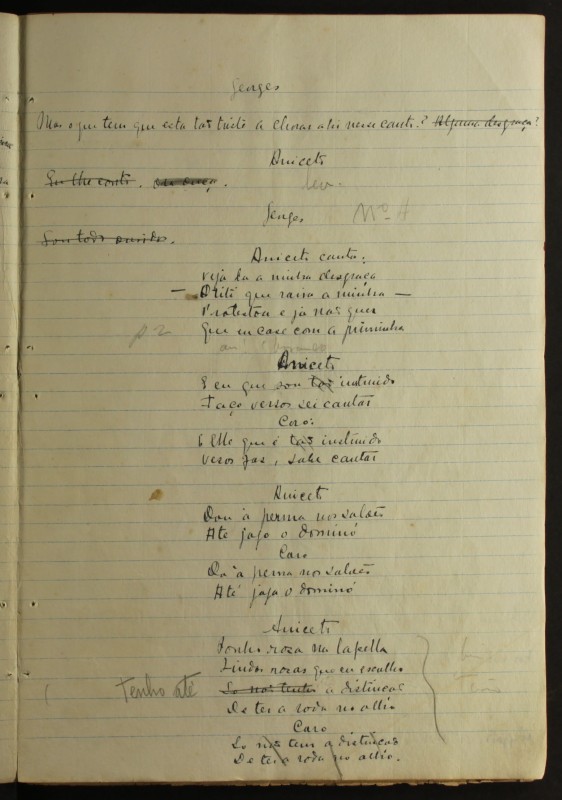 Georges
Mas o que tem que esta tão triste a chorar ahi nesse canto? Alguma desgraça?
Aniceto
Eu lhe conto. ou ouça.
Georges Nº A
Sou todo ouvidos.
Aniceto canta:
Veja la a minha desgraça
— A titi que raiva a minha —
Protestou e já não quer
p 2 Que eu case com a priminha
Aniceto
E eu que sou tão instruido
Faço versos sei cantar
Coro:
E elle que é tão instruido
versos faz, sabe cantar
Aniceto
Dou á perna nos salões
Até jogo o dominó
Coro
Dá á perna nos salões
Até joga o dominó
Aniceto
Ponho rosa na lapella
Lindas rosas que eu escolho
Tenho até Só não tenho a distincção
De ter a roda no olho
Coro
Só não tem a distincção
De ter a roda no olho.